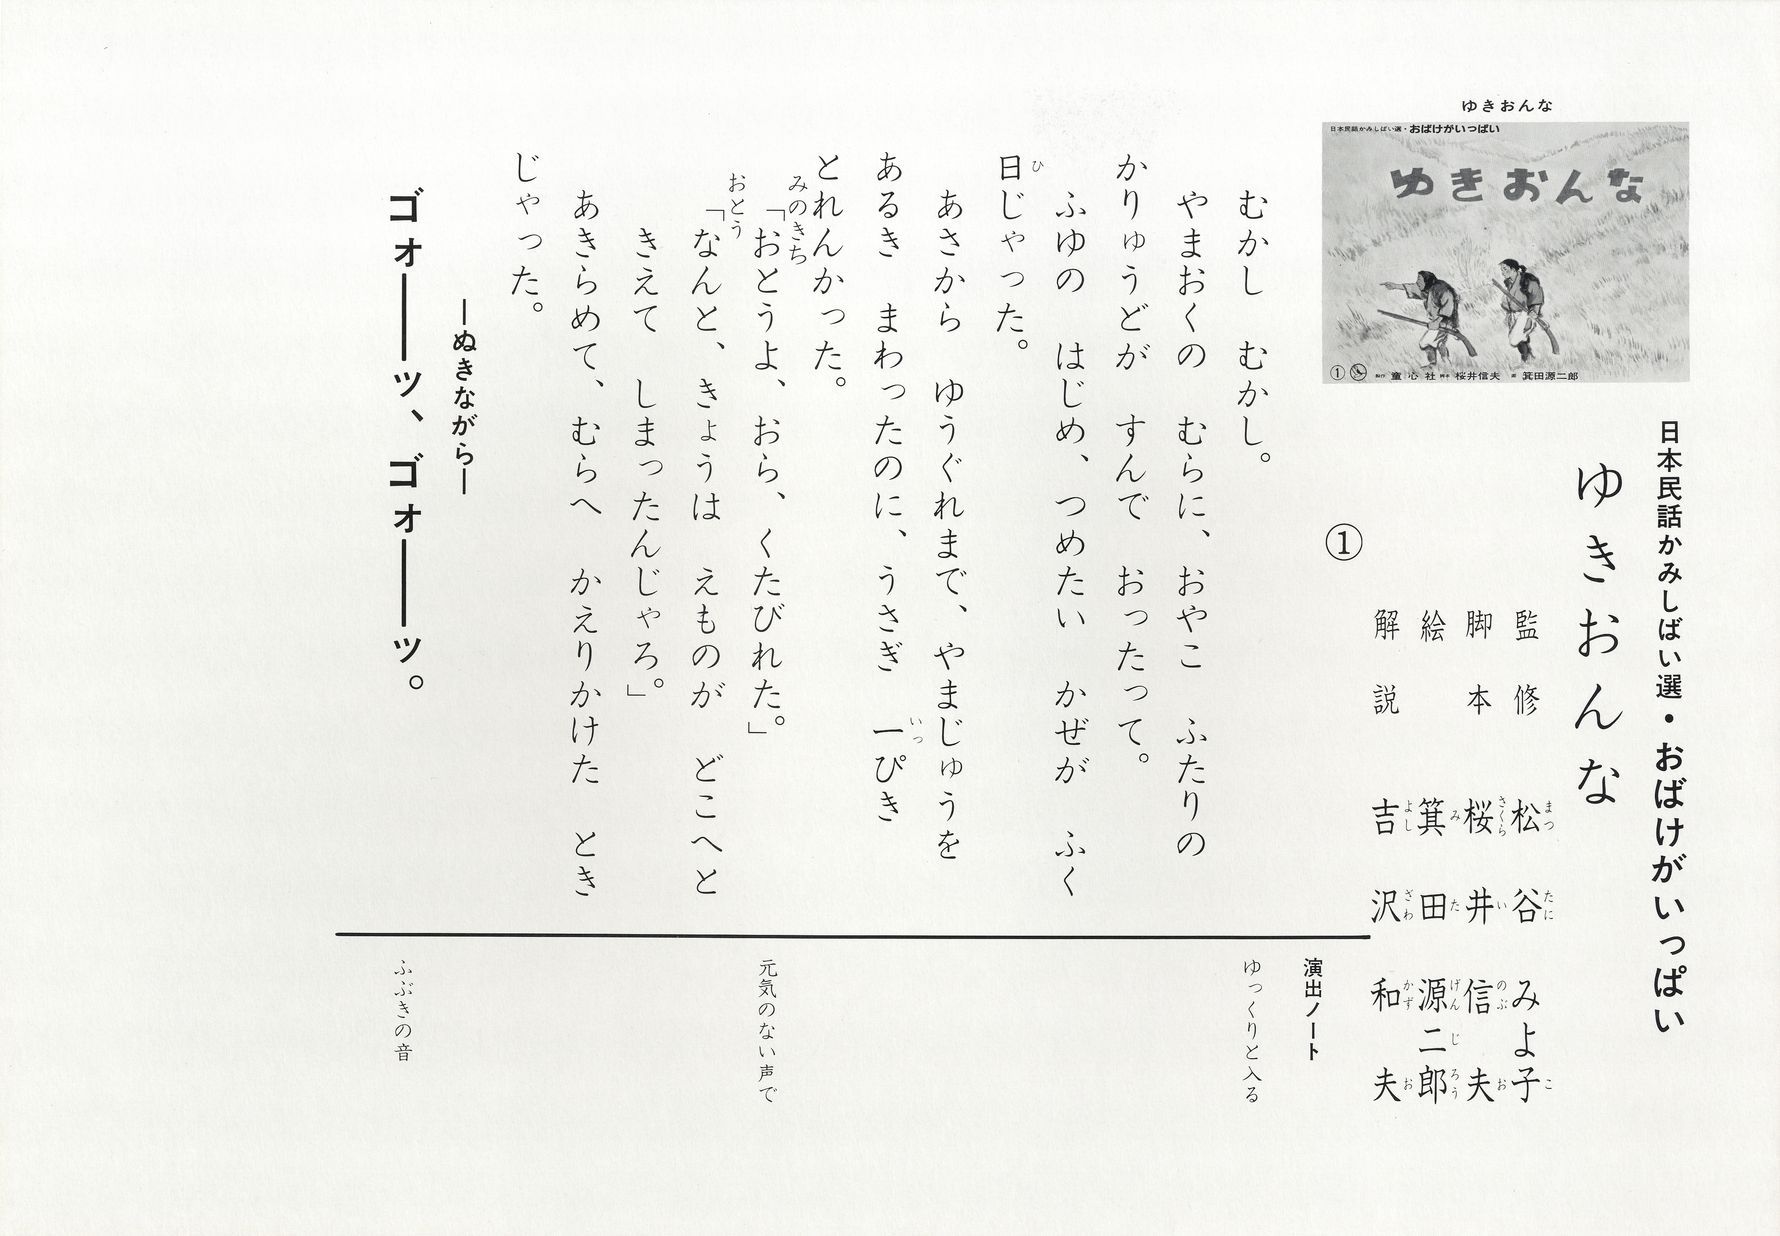 ゆきおんな
日本民話かみしばい選・おばけがいっぱい
ゆきおんな
① 製作 童心社 脚本 桜井信夫 画 箕田源二郎
日本民話かみしばい選・おばけがいっぱい
ゆきおんな
監修 松谷みよ子
まつ たに こ
脚本 桜井信夫
さくら い のぶ お
絵 箕田源二郎
み た げん じ ろう
解説 吉沢和夫
よし ざわ かず お
①
むかし むかし。
やまおくの むらに、おやこ ふたりの
かりゅうどが すんで おったって。
ふゆの はじめ、つめたい かぜが ふく
日じゃった。
ひ
あさから ゆうぐれまで、やまじゅうを
あるき まわったのに、うさぎ 一ぴき
いっ
とれんかった。
みのきち
「おとうよ、おら、くたびれた。」
おとう
「なんと、きょうは えものが どこへと
きえて しまったんじゃろ。」
あきらめて、むらへ かえりかけた とき
じゃった。
―ぬきながら―
ゴォ――ッ、ゴォ――ッ。
演出ノート
ゆっくりと入る
元気のない声で
ふぶきの音